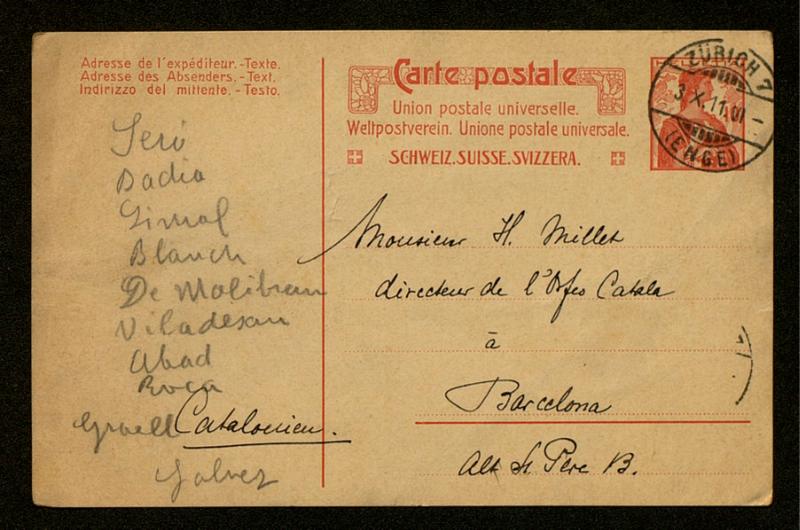 Adresse de l'expéditeur.-Texte.
Adresse des Absenders.-Text.
Indirizzo del mittente.-Testo.
Carte postale
Union postale universelle.
Weltpostverein. Unione postale universale.
SCHWEIZ.SUISSE.SVIZZERA.
ZÜRICH 7
3.X.11.
(ENGE)
Badia
Blanch
De Malibran
Viladesau
Abad
Roca
Graell
Galvez
Catalonien.
Monsieur H. Millet
directeur de l'Orfeo Catala
à
Barcelona
Alt St Pere B.